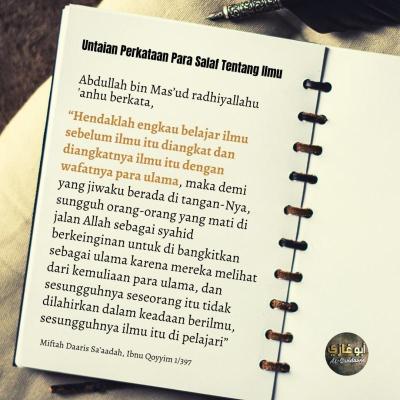 Untaian Perkataan Para Salaf Tentang Ilmu
Abdullah bin Mas'ud radhiyallahu
'anhu berkata,
“Hendaklah engkau belajar ilmu
sebelum ilmu itu diangkat dan
diangkatnya ilmu itu dengan
wafatnya para ulama, maka demi
yang jiwaku berada di tangan-Nya,
sungguh orang-orang yang mati di
jalan Allah sebagai syahid
berkeinginan untuk di bangkitkan
sebagai ulama karena mereka melihat
dari kemuliaan para ulama, dan
sesungguhnya seseorang itu tidak
dilahirkan dalam keadaan berilmu,
sesungguhnya ilmu itu di pelajari”
Miftah Daaris Sa'aadah, Ibnu Qoyyim 1/397
أبو غازي